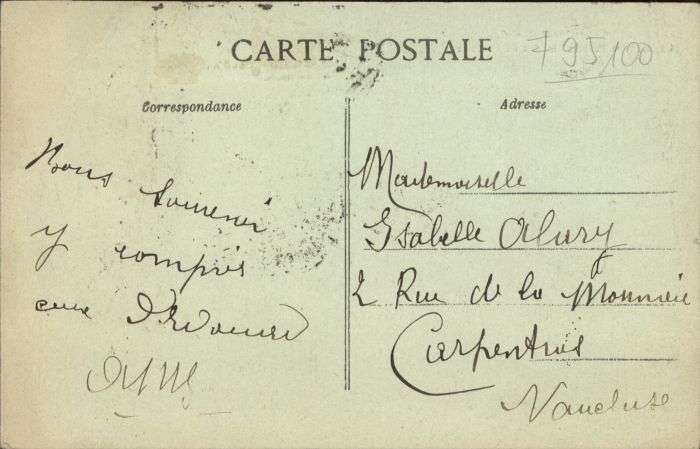 CARTE POSTALE
795/00
Correspondance
Adresse
Bons souvenir
y compris
ceux d'Edouard
Mademoiselle
Isabelle Alary
2 Rue de la Monnaie
Carpentras
Vaucluse